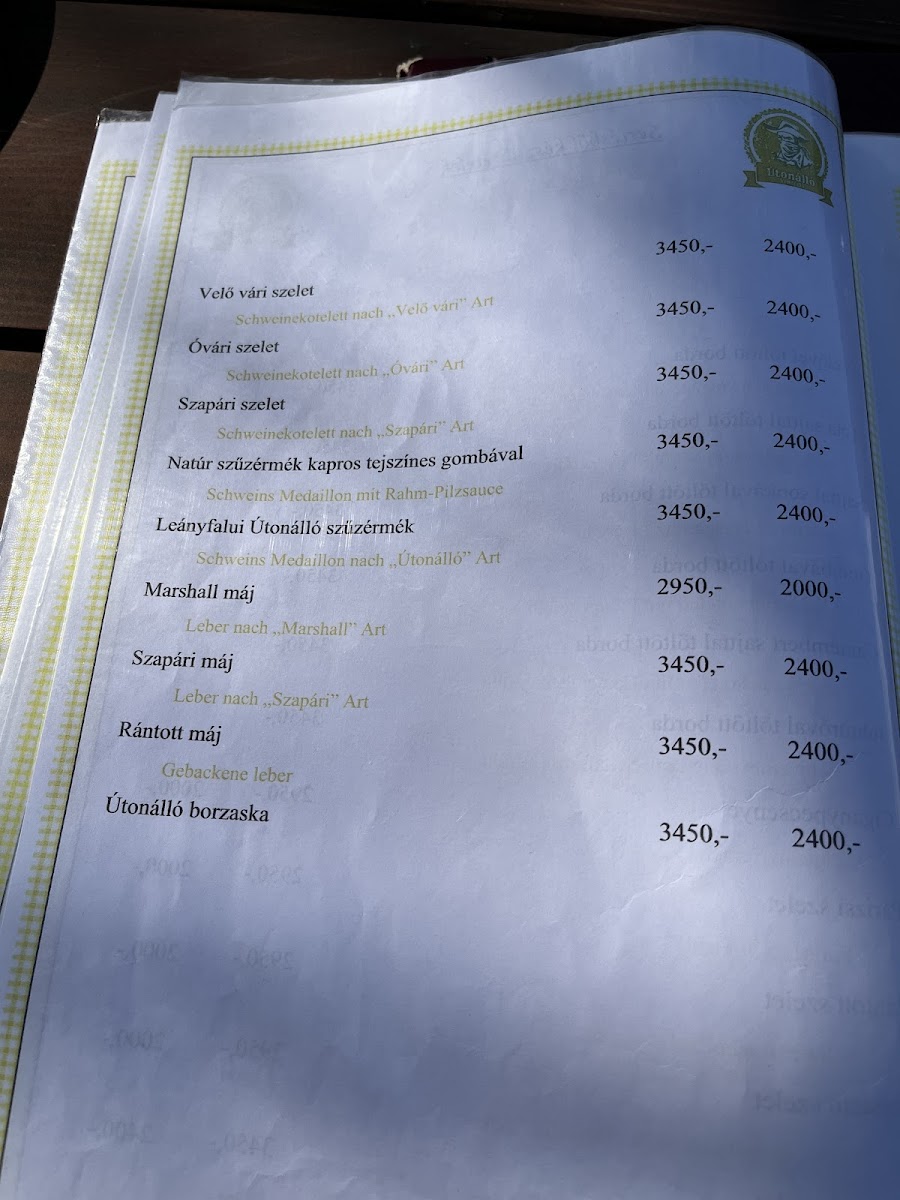 Útonálló
Velő vári szelet 3450,- 2400,-
Schweinekotelett nach „Velő vári” Art
Óvári szelet 3450,- 2400,-
Schweinekotelett nach „Óvári” Art
Szapári szelet 3450,- 2400,-
Schweinekotelett nach „Szapári” Art
Natúr szűzérmék kapros tejszínes gombával 3450,- 2400,-
Schweins Medaillon mit Rahm-Pilzsauce
Leányfalui Útonálló szűzérmék 3450,- 2400,-
Schweins Medaillon nach „Útonálló” Art
Marshall máj 2950,- 2000,-
Leber nach „Marshall” Art
Szapári máj 3450,- 2400,-
Leber nach „Szapári” Art
Rántott máj 3450,- 2400,-
Gebackene leber
Útonálló borzaska 3450,- 2400,-